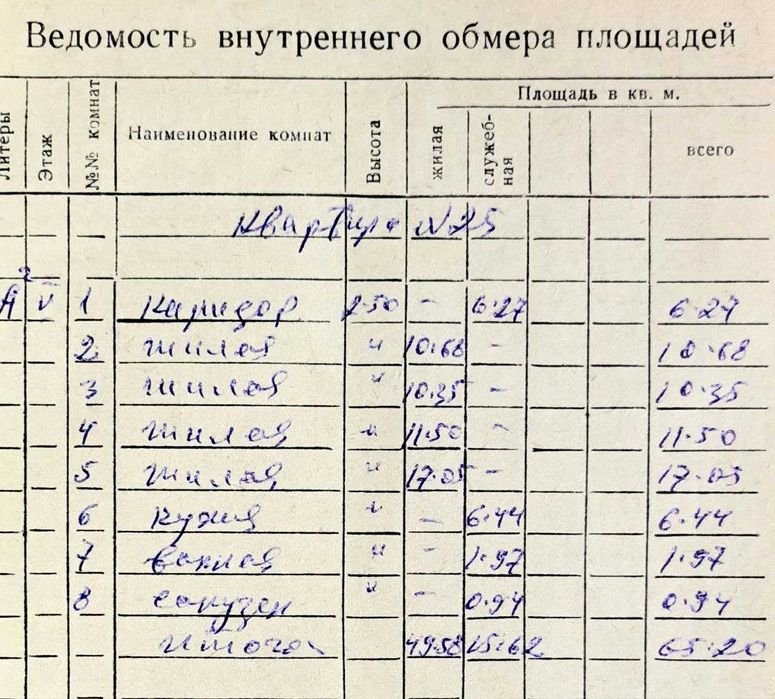 Ведомость внутреннего обмера площадей
Литеры Этаж №№ комнат Наименование комнат Высота Площадь в кв. м.
жилая служеб-ная всего
Квартира №25
А² V 1 Каридор 2.50 - 6.27 6.27
2 жилая " 10.68 - 10.68
3 жилая " 10.35 - 10.35
4 жилая " 11.50 - 11.50
5 жилая " 17.05 - 17.05
6 кухня " - 6.44 6.44
7 ванная " - 1.97 1.97
8 санузел " - 0.94 0.94
Итого 49.58 15.62 65.20